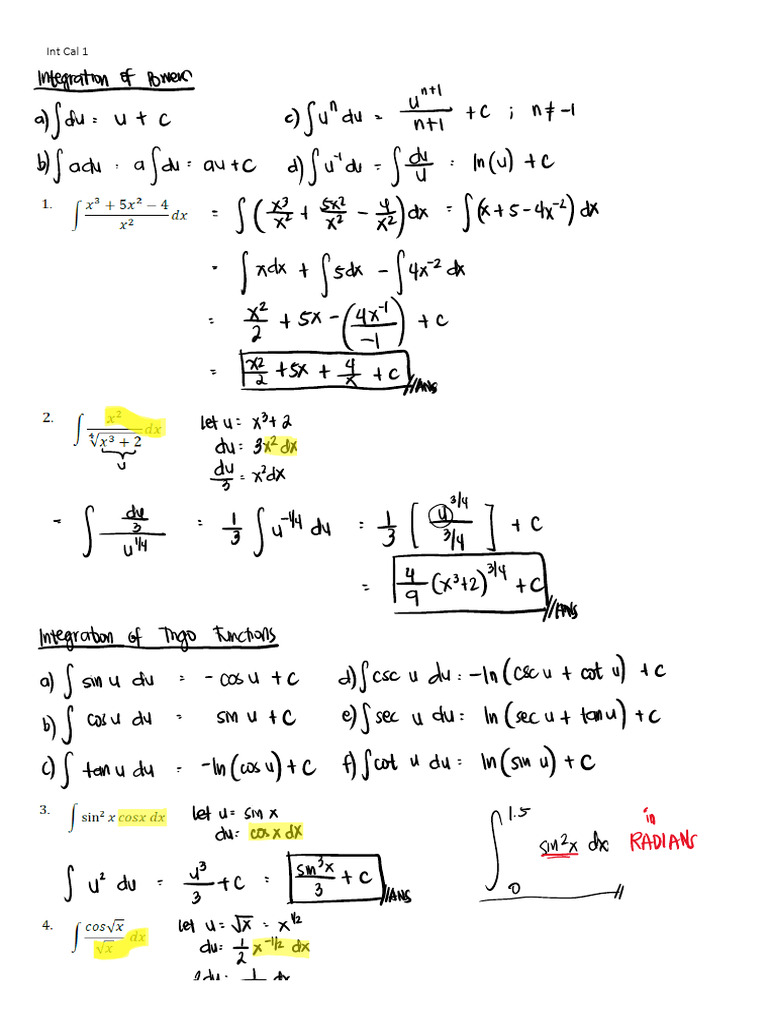 Int Cal 1
Integration of Powers
a) ∫ du = u + c    c) ∫ uⁿ du = uⁿ⁺¹/(n+1) + c ; n ≠ -1
b) ∫ adu = a ∫ du = au + c    d) ∫ u⁻¹ du = ∫ du/u = ln(u) + c
1. ∫ (x³ + 5x² − 4)/x² dx = ∫ (x³/x² + 5x²/x² − 4/x²) dx = ∫ (x + 5 − 4x⁻²) dx
= ∫ xdx + ∫ 5dx − ∫ 4x⁻² dx
= x²/2 + 5x − (4x⁻¹/−1) + c
= x²/2 + 5x + 4/x + c //ANS
2. ∫ x²/∜(x³ + 2) dx    let u = x³ + 2
u    du = 3x² dx
du/3 = x²dx
= ∫ (du/3)/u^(1/4) = 1/3 ∫ u^(-1/4) du = 1/3 [u^(3/4)/(3/4)] + c
= 4/9 (x³+2)^(3/4) + c //ANS
Integration of Trigo Functions
a) ∫ sin u du = - cos u + c    d) ∫ csc u du = -ln(csc u + cot u) + c
b) ∫ cos u du = sin u + c    e) ∫ sec u du = ln(sec u + tan u) + c
c) ∫ tan u du = -ln(cos u) + c    f) ∫ cot u du = ln(sin u) + c
3. ∫ sin² x cosx dx    let u = sin x
du = cos x dx
∫ u² du = u³/3 + c = sin³x/3 + c //ANS
∫₀^1.5 sin²x dx    in RADIANS
4. ∫ cos√x/√x dx    let u = √x = x^(1/2)
du = 1/2 x^(-1/2) dx